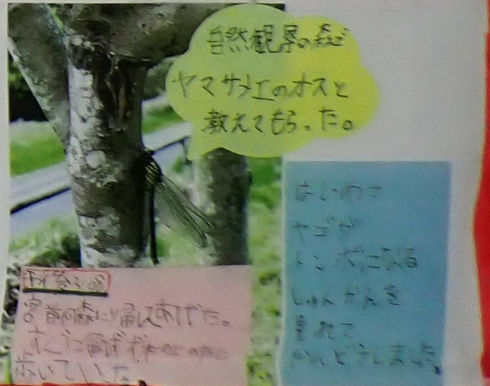 自然観察の森で
ヤマサナエのオスと
教えてもらった。
はじめて
ヤゴが
トンボになる
しゅんかんを
見れて
かんどうしました。
宮前の森に帰してあげた。
歩いていった